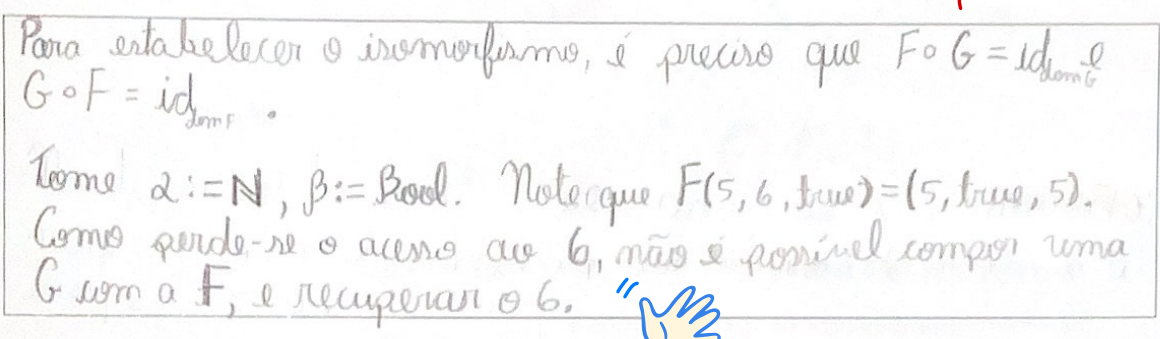 Para estabelecer o isomorfismo, é preciso que F∘G = id_domG e
G∘F = id_domF.
Tome α:=ℕ, β:=Bool. Note que F(5, 6, true)=(5, true, 5).
Como perde-se o acesso ao 6, não é possível compor uma
G com a F, e recuperar o 6.